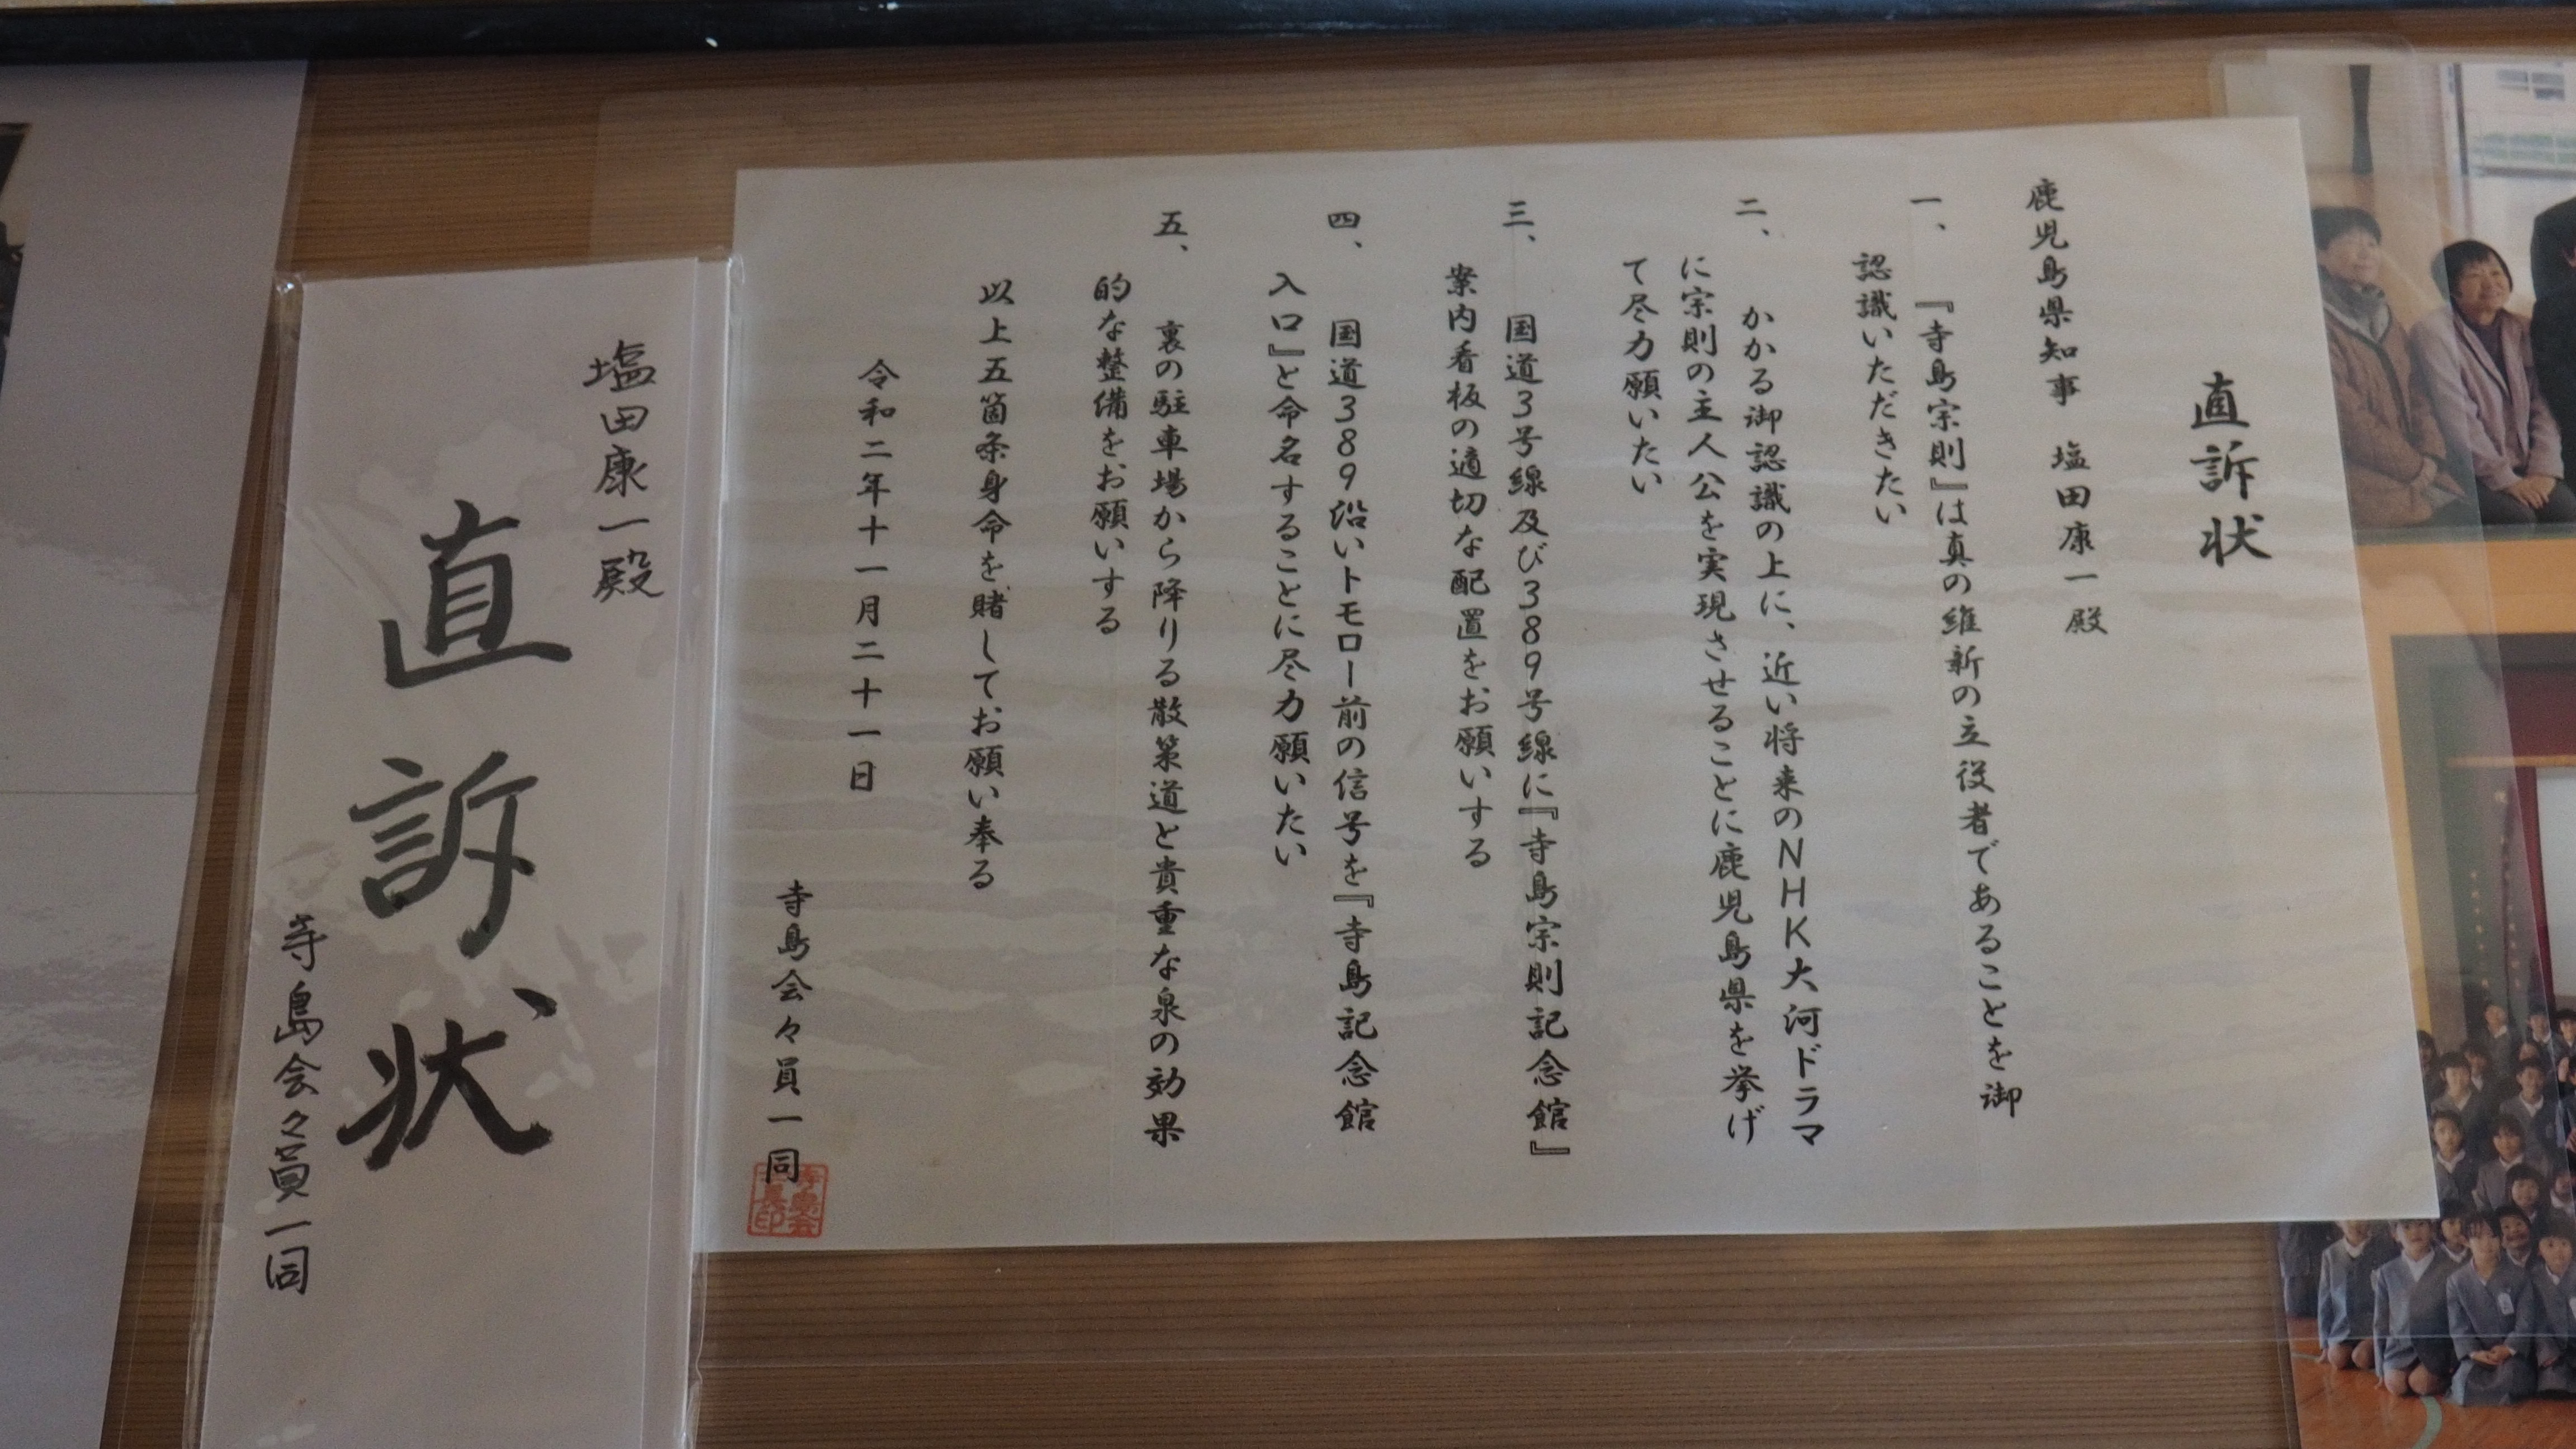 直訴状
鹿児島県知事 塩田康一殿
一、『寺島宗則』は真の維新の立役者であることを御
認識いただきたい
二、かかる御認識の上に、近い将来のNHK大河ドラマ
に宗則の主人公を実現させることに鹿児島県を挙げ
て尽力願いたい
三、国道3号線及び389号線に『寺島宗則記念館』
案内看板の適切な配置をお願いする
四、国道389沿いトモロー前の信号を『寺島記念館
入口』と命名することに尽力願いたい
五、裏の駐車場から降りる散策道と貴重な泉の効果
的な整備をお願いする
以上五箇条身命を賭してお願い奉る
令和二年十一月二十一日
寺島会々員一同
寺島会
会員印
塩田康一殿
直訴状
寺島会々員一同